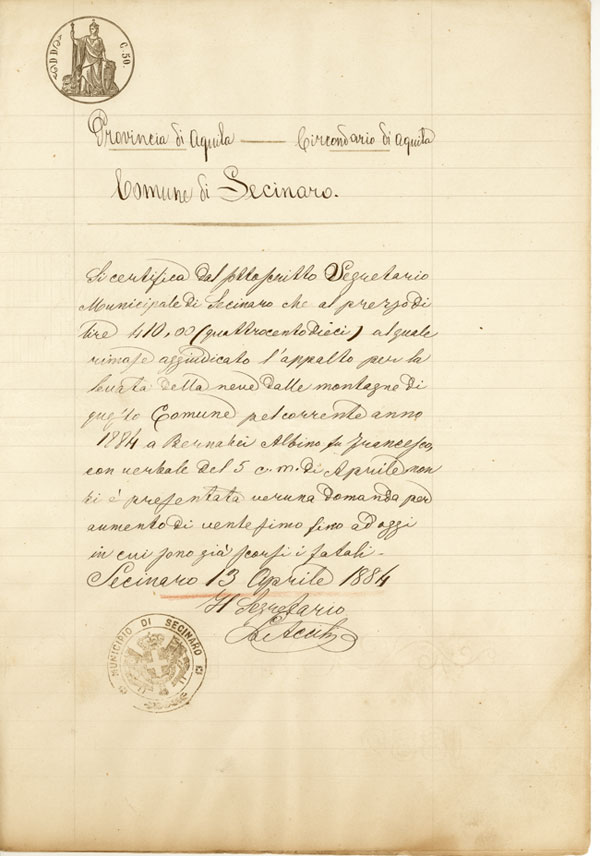 C. 50.
Provincia di Aquila — Circondario di Aquila
Comune di Secinaro.
Si certifica dal sottoscritto Segretario
Municipale di Secinaro che al prezzo di
lire 410,00 (quattrocentodieci) al quale
rimase aggiudicato l'appalto per la
levata della neve dalle montagne di
questo Comune pel corrente anno
1884 a Bernabei Albino fu Francesco,
con verbale del 5 c. m. di Aprile non
si è presentata veruna domanda per
aumento di ventesimo fino ad oggi
in cui sono già scorsi i fatali -
Secinaro 13 Aprile 1884
Il Segretario
MUNICIPIO DI SECINARO